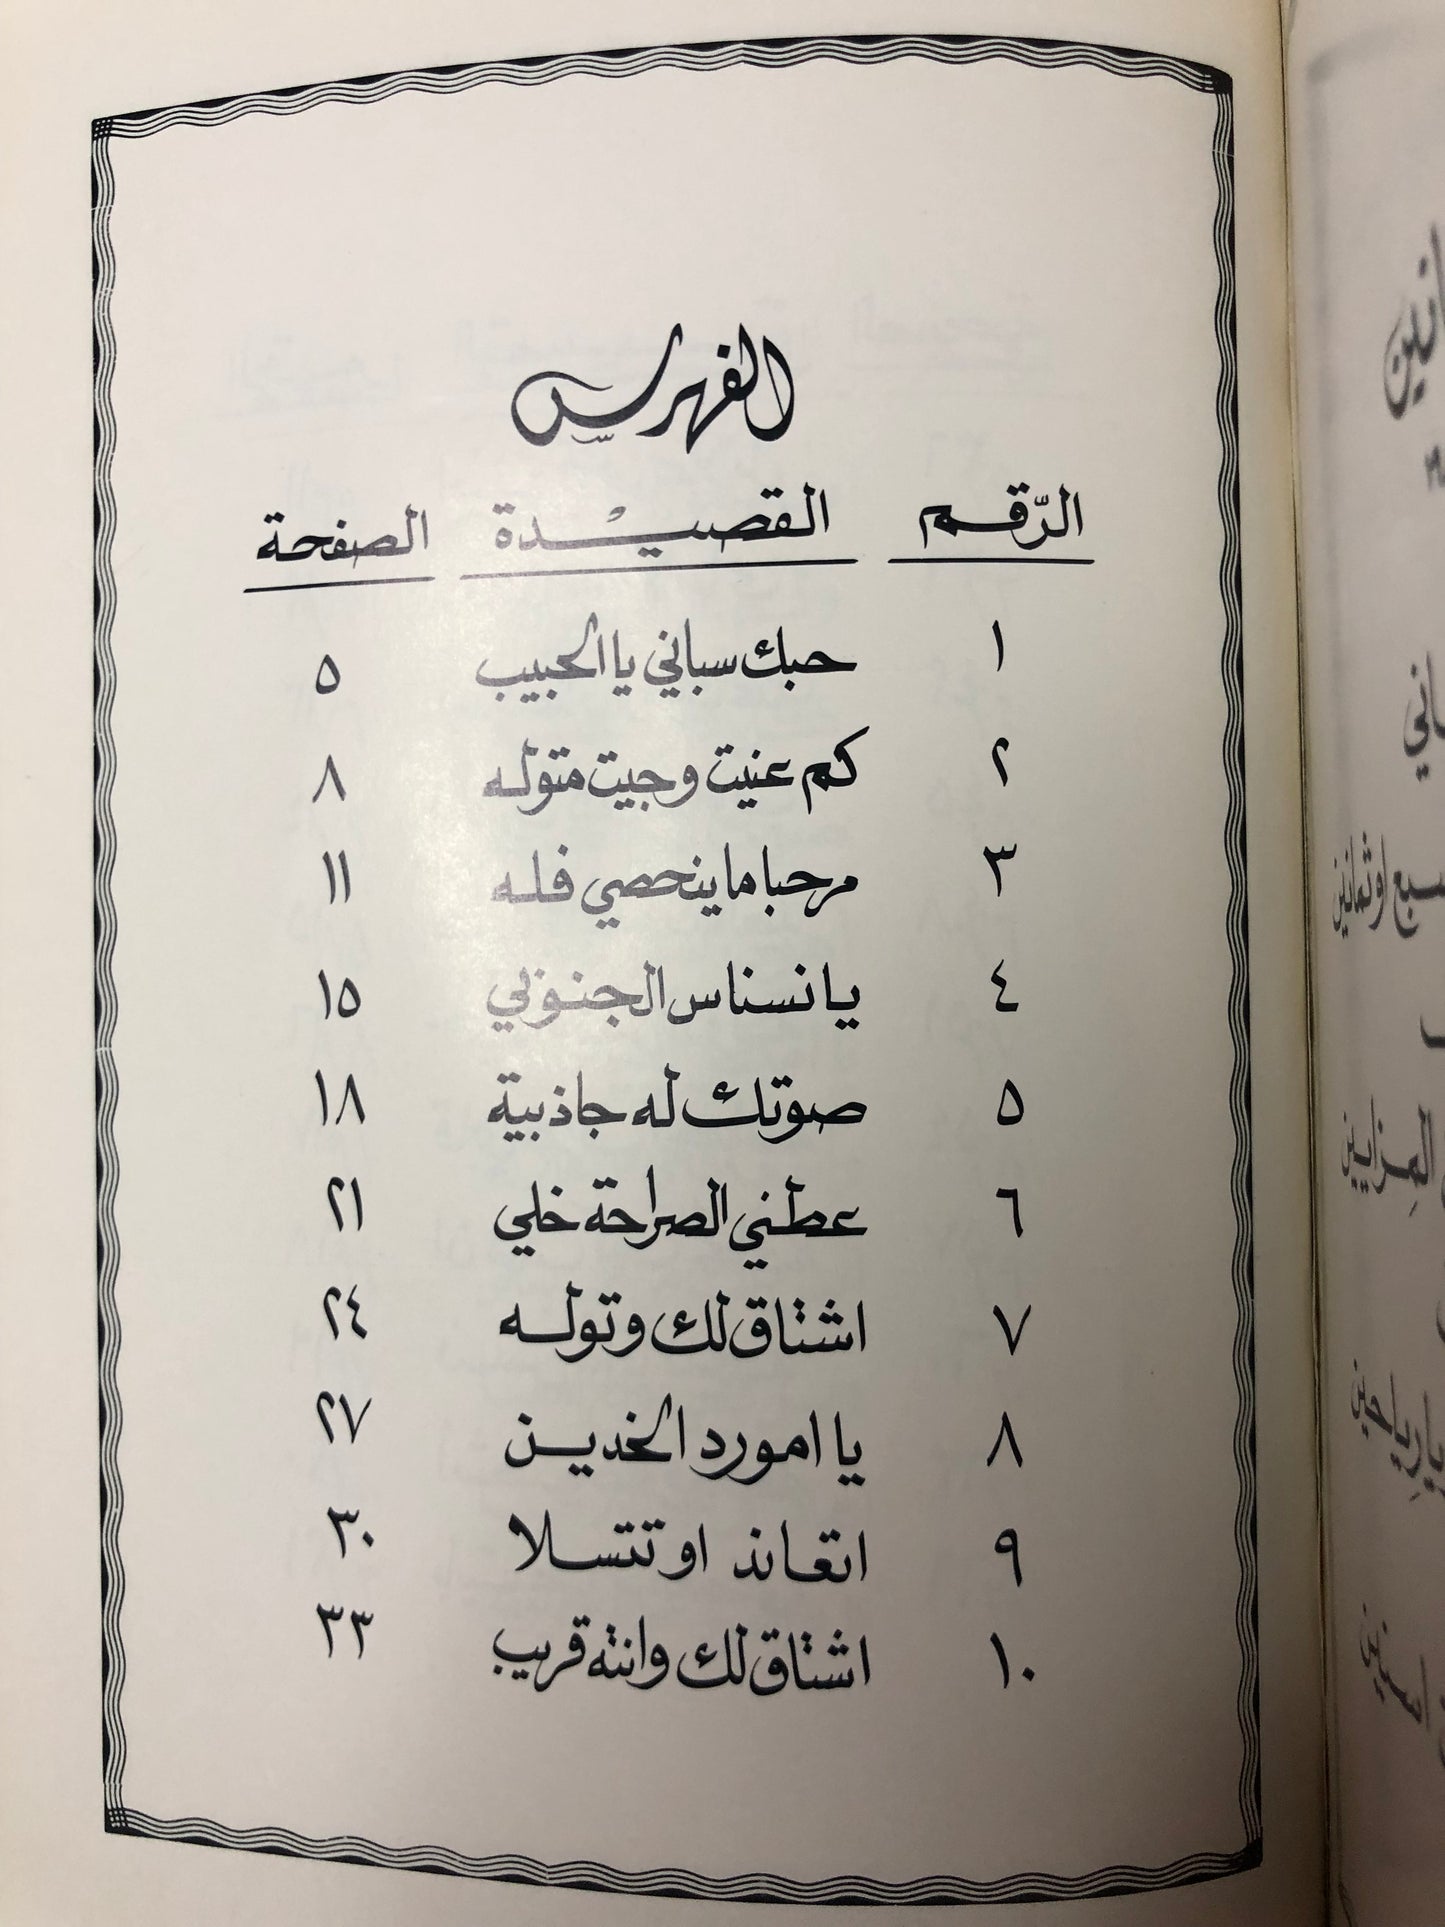 الفهرس
الرّقم القصيْدة الصفحة
١ حبك سباني يا الحبيب ٥
٢ كم عنيت وجيت متوله ٨
٣ مرحبا ما ينحصي فله ١١
٤ يا نسناس الجنوبي ١٥
٥ صوتك له جاذبية ١٨
٦ عطني الصراحة خلي ٢١
٧ اشتاق لك وتوله ٢٤
٨ يا امورد الخدين ٢٧
٩ اتعاند او تتسلا ٣٠
١٠ اشتاق لك وانته قريب ٣٣